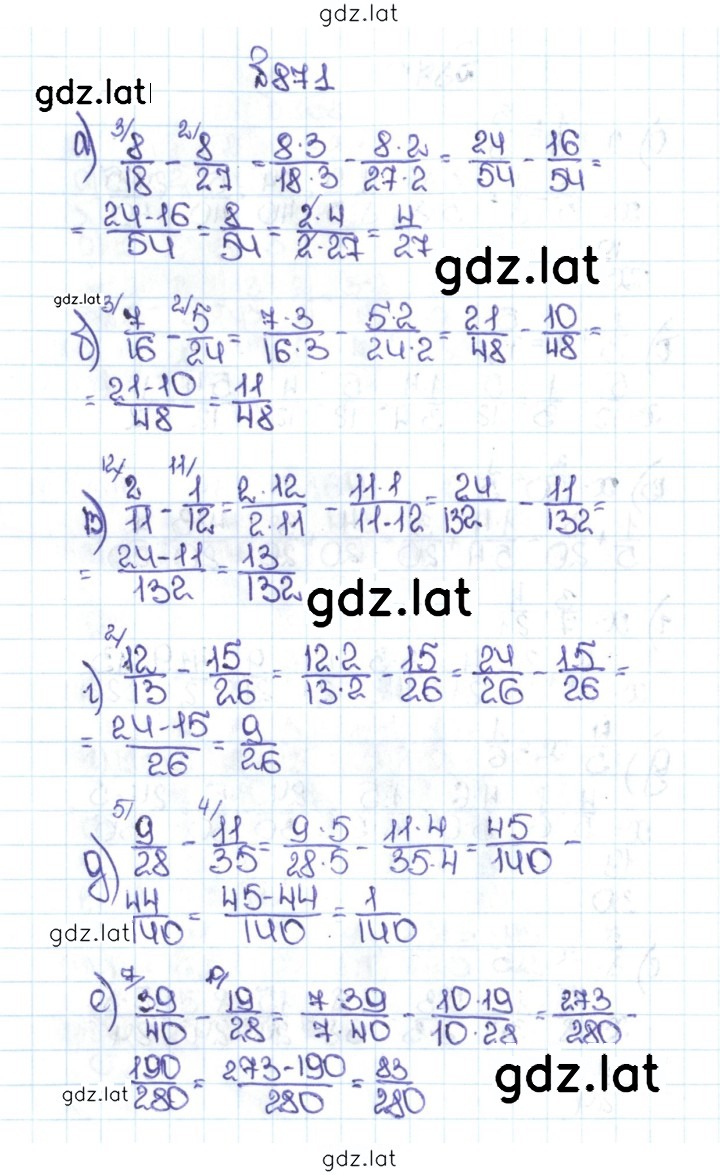 gdz.lat
№871
gdz.lat
а) 3/ 8/18 - 2/ 8/27 = 8·3/18·3 - 8·2/27·2 = 24/54 - 16/54 =
= 24-16/54 = 8/54 = 2·4/2·27 = 4/27
gdz.lat
gdz.lat
б) 3/ 7/16 - 2/ 5/24 = 7·3/16·3 - 5·2/24·2 = 21/48 - 10/48 =
= 21-10/48 = 11/48
в) 12/ 2/11 - 11/ 1/12 = 2·12/2·11 - 11·1/11·12 = 24/132 - 11/132 =
= 24-11/132 = 13/132
gdz.lat
г) 2/ 12/13 - 15/26 = 12·2/13·2 - 15/26 = 24/26 - 15/26 =
= 24-15/26 = 9/26
д) 5/ 9/28 - 4/ 11/35 = 9·5/28·5 - 11·4/35·4 = 45/140 -
44/140 = 45-44/140 = 1/140
gdz.lat
е) 7/ 39/40 - 10/ 19/28 = 7·39/7·40 - 10·19/10·28 = 273/280 -
190/280 = 273-190/280 = 83/280
gdz.lat
gdz.lat
gdz.lat